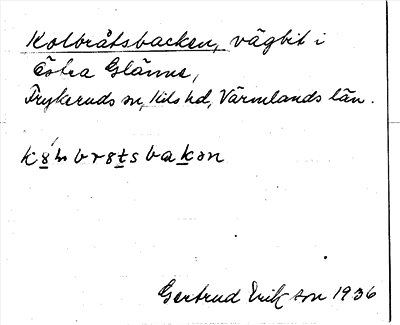 Kolbråtsbacken, vägbit i
Östra Glänne,
Frykeruds sn, Kils hd, Värmlands län.
Gertrud Erikson 1936